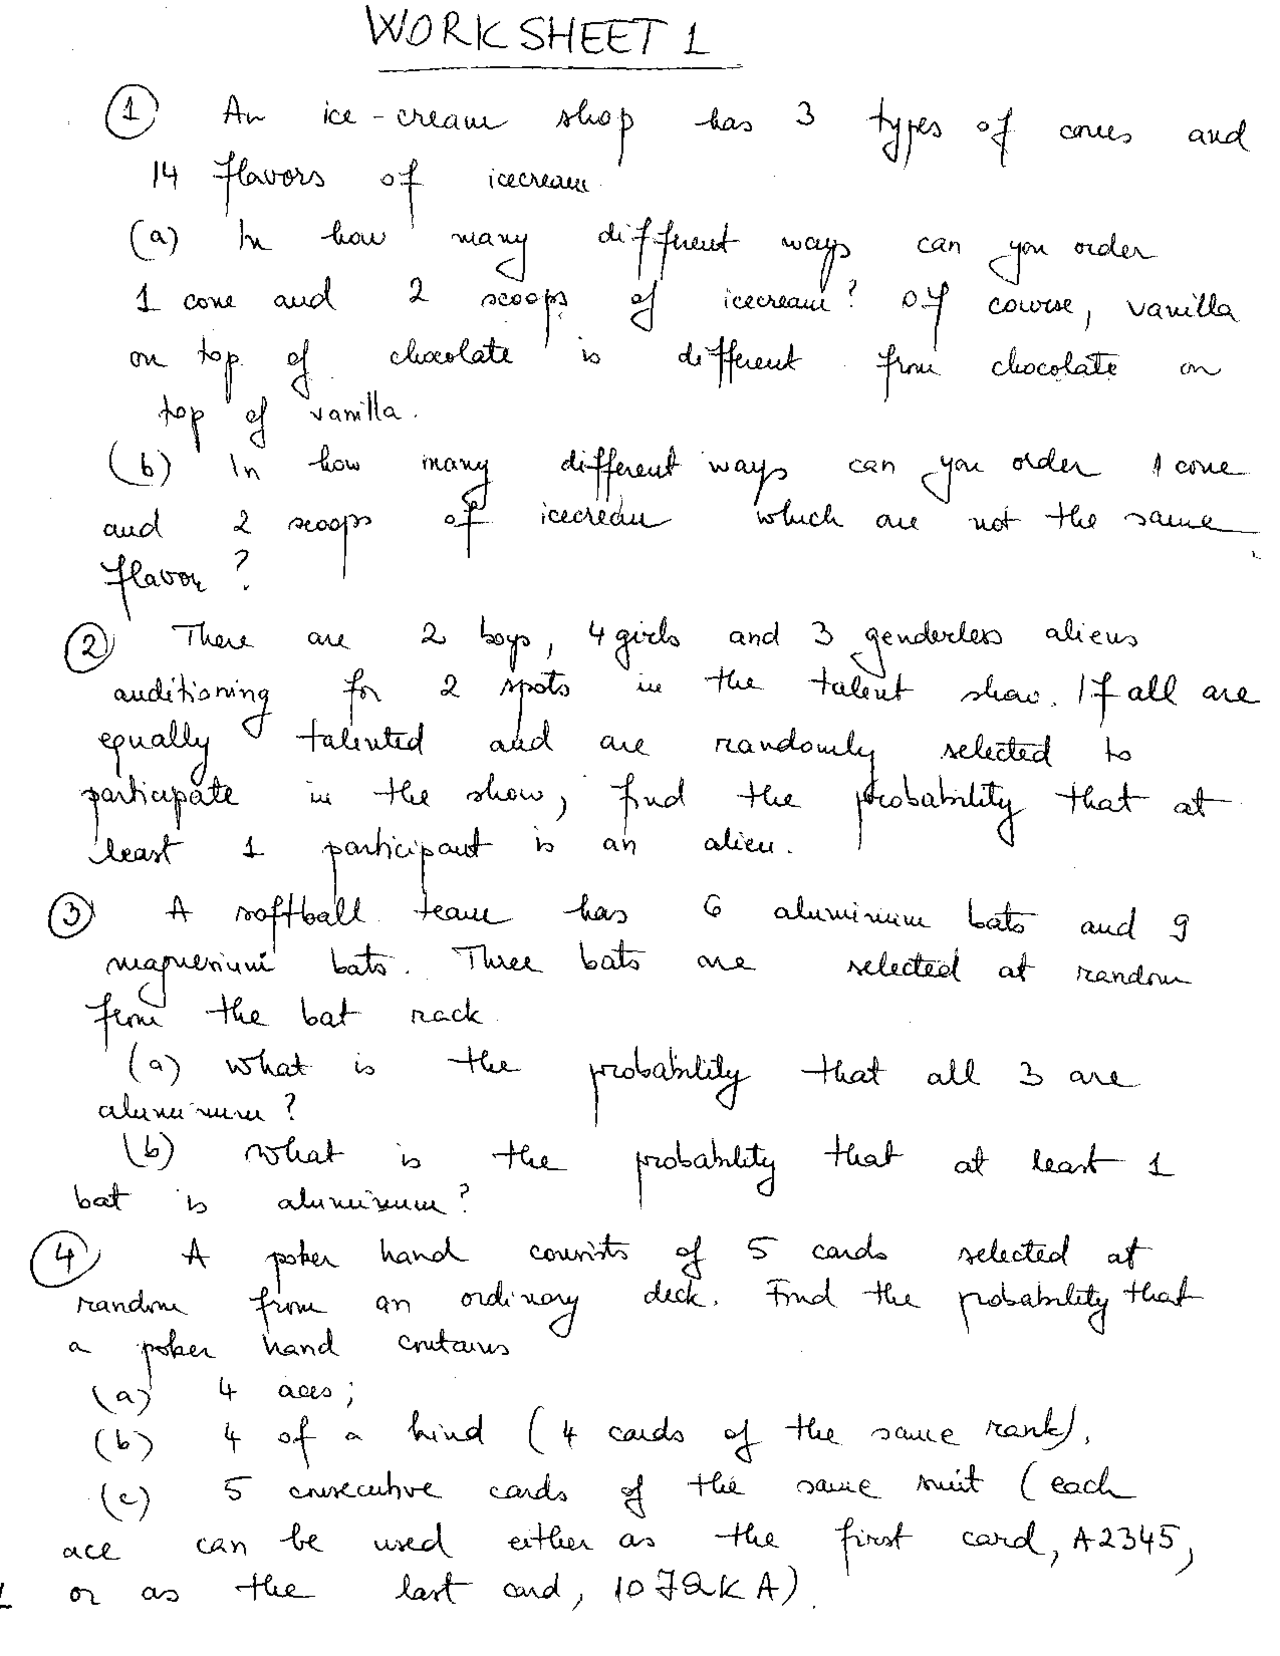 WORKSHEET 1
① An ice-cream shop has 3 types of cones and
14 flavors of icecream.
(a) In how many different ways can you order
1 cone and 2 scoops of icecream? Of course, vanilla
on top of chocolate is different from chocolate on
top of vanilla.
(b) In how many different ways can you order 1 cone
and 2 scoops of icecream which are not the same
flavor?
② There are 2 boys, 4 girls and 3 genderless aliens
auditioning for 2 spots in the talent show. If all are
equally talented and are randomly selected to
participate in the show, find the probability that at
least 1 participant is an alien.
③ A softball team has 6 aluminium bats and 9
magnesium bats. Three bats are selected at random
from the bat rack.
(a) What is the probability that all 3 are
aluminum?
(b) What is the probability that at least 1
bat is aluminum?
④ A poker hand consists of 5 cards selected at
random from an ordinary deck. Find the probability that
a poker hand contains
(a) 4 aces;
(b) 4 of a kind (4 cards of the same rank).
(c) 5 consecutive cards of the same suit (each
ace can be used either as the first card, A2345,
or as the last card, 10JQKA).